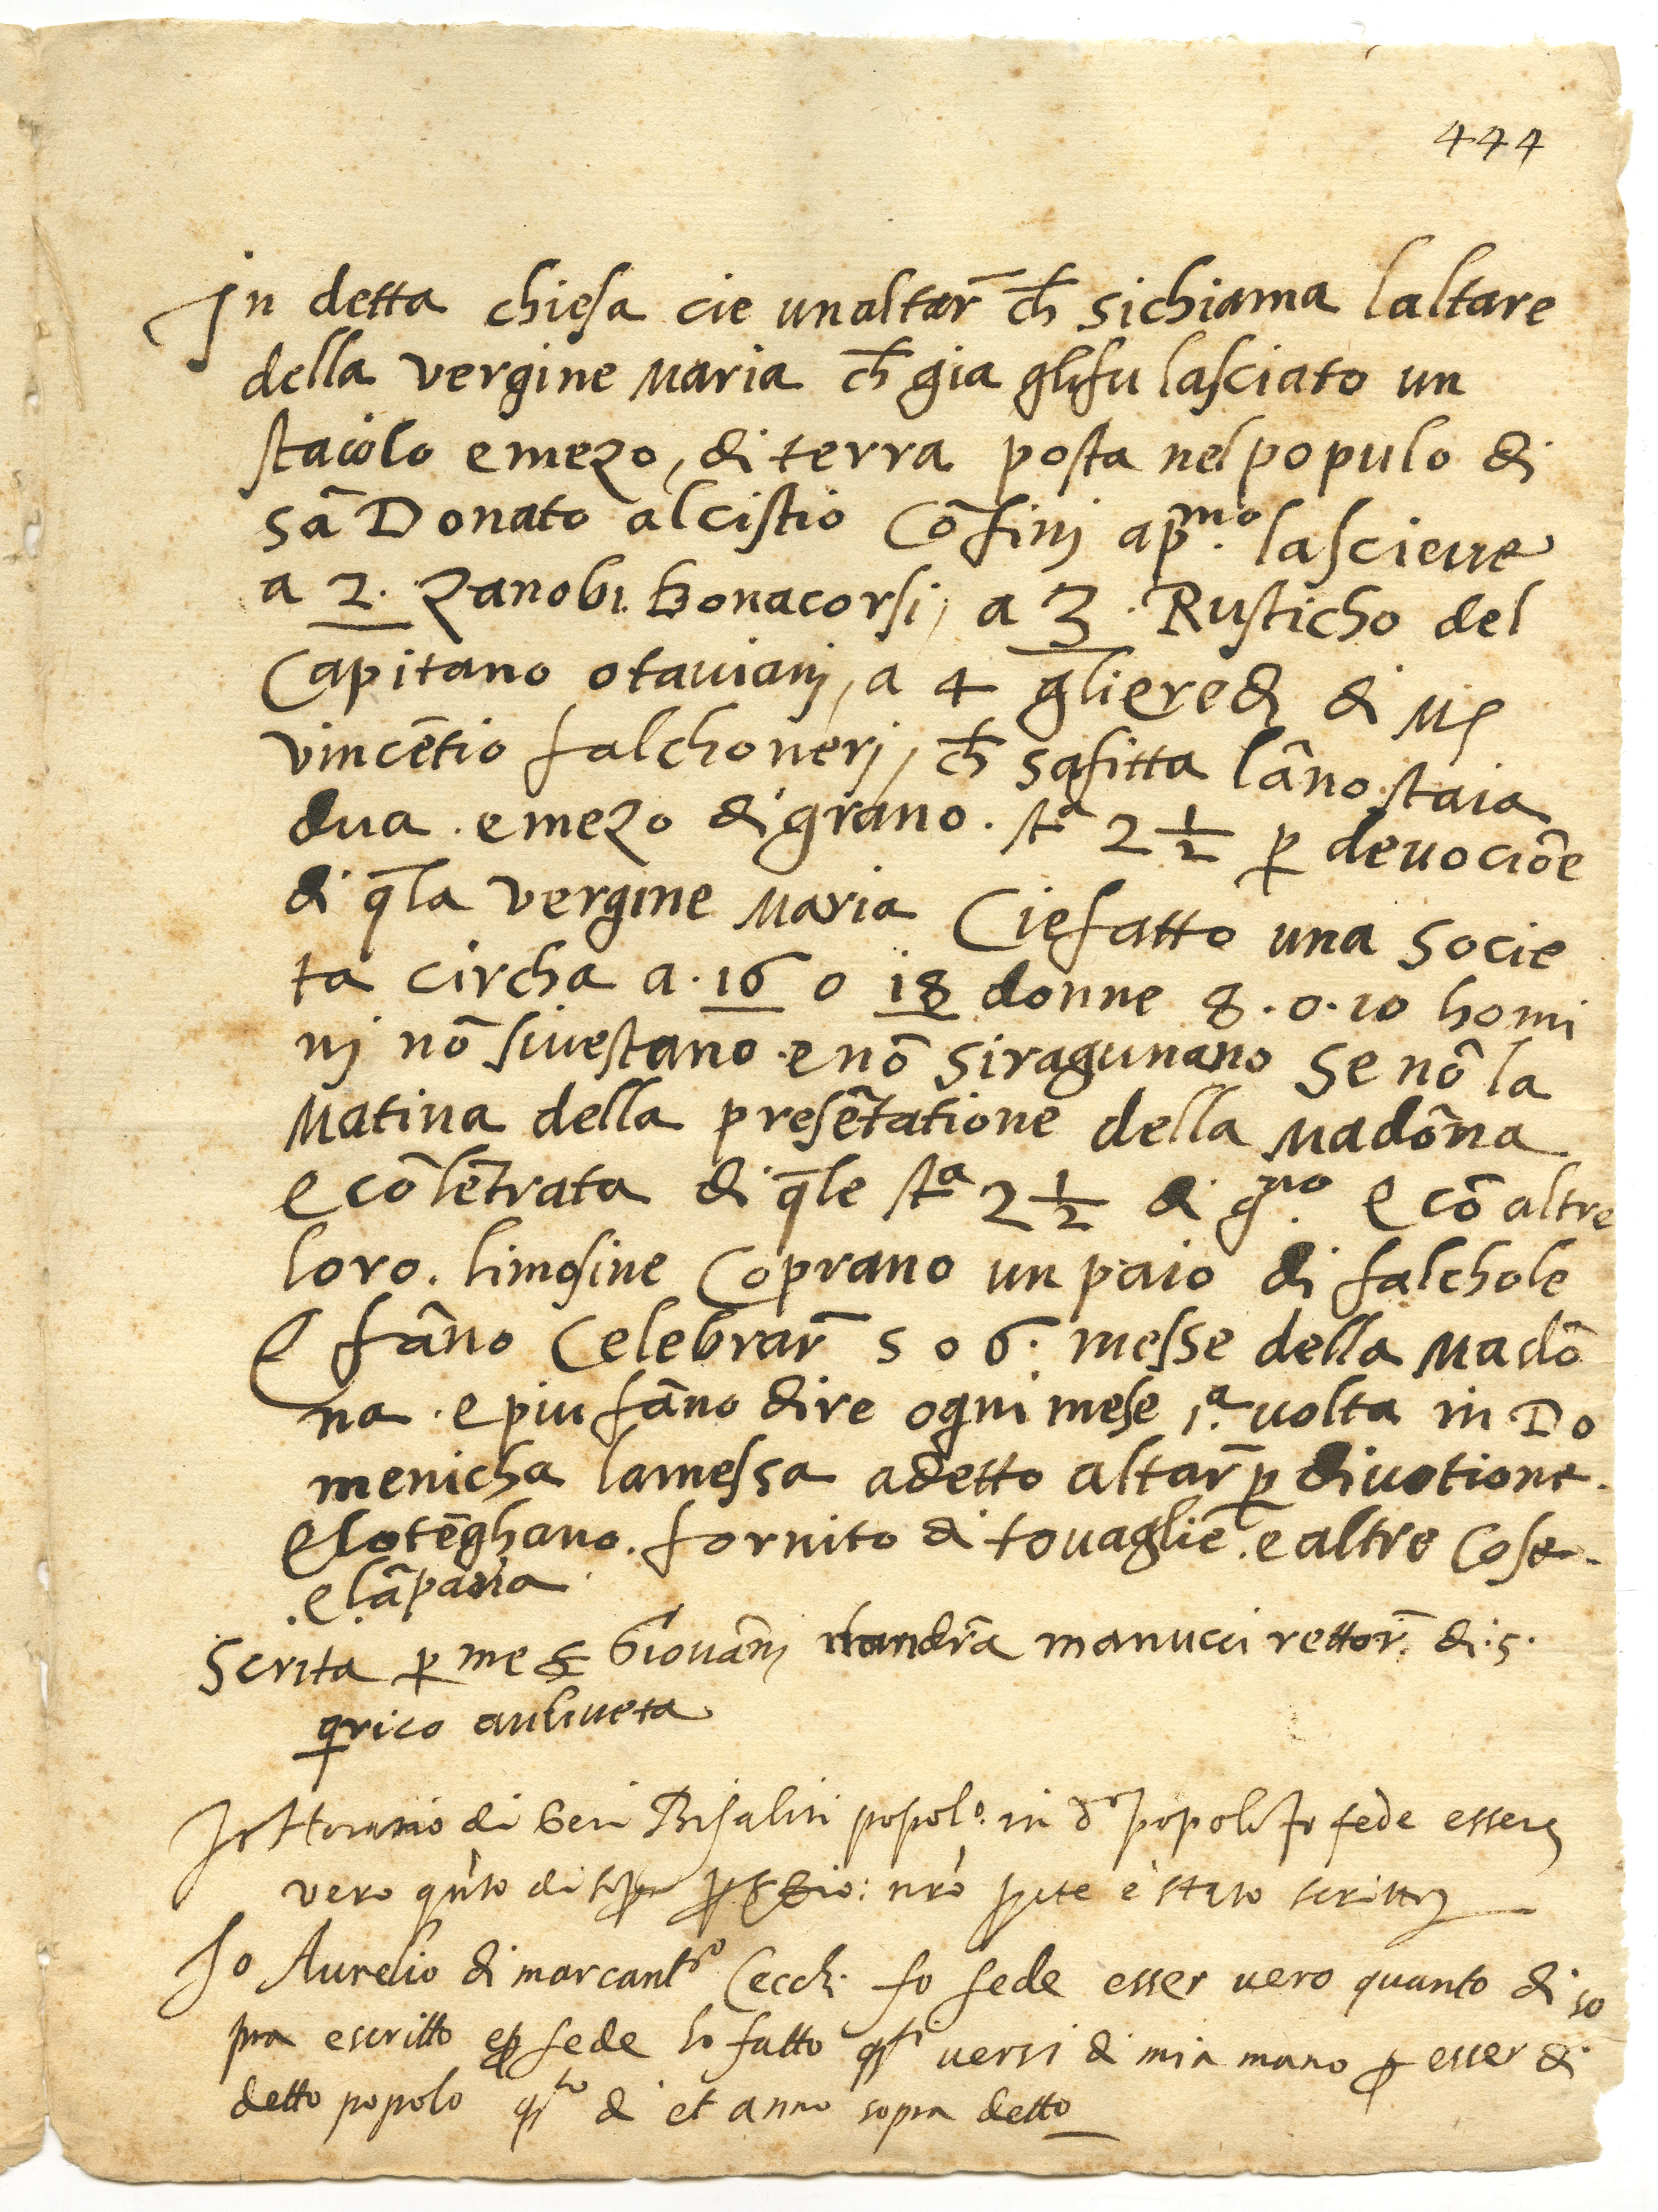 444
In detta chiesa cie unaltar̄ ch̄ sichiama laltare
della vergine Maria ch̄ gia glifu lasciato un
staiolo e mezo, di terra posta nel populo di
sā Donato alcistio Cōfinj a pᵐᵒ. lascieue
a 2. Zanobi. Bonacorsi, a 3. Rusticho del
Capitano otauianj, a 4 glieredi di Mˢ
vincētio falchonerj, ch̄ safitta lāno staia
dua. e mezo di grano. stᵃ 2 1/2 p deuociōe
di q̄la vergine Maria Ciefatto una socie
ta circha a. 16 o 18 donne 8. o. 10 homi
nj nō siuestano. e nō siragunano se nō la
Matina della presētatione della Madōna
e cō lētrata di q̄le stᵃ 2 1/2 di gⁿᵒ. e cō altre
loro. limosine Coprano un paio di falchole
E fāno Celebrar̄ 5 o 6. messe della Madō
na. e piu fāno dire ogni mese 1ᵃ. uolta in Do
menicha la messa a detto altar̄ p diuotione.
e lo tēghano. fornito di touaglie. e altre Cose.
. e lāpana
Scrita p me S Giouānj manucci rettor̄. di. s.
qrico auliueta
Io di Geri popolᵒ. in dᵒ popolo fo fede essere
vero qn̄to di sopra nrō è stato scritto
Io Aurelio di marcantᵒ Cecchi fo fede esser vero quanto di so
pra e scritto e p fede ho fatto qsti versi di mia mano p esser di
detto popolo qstᵒ dì et anno sopra detto